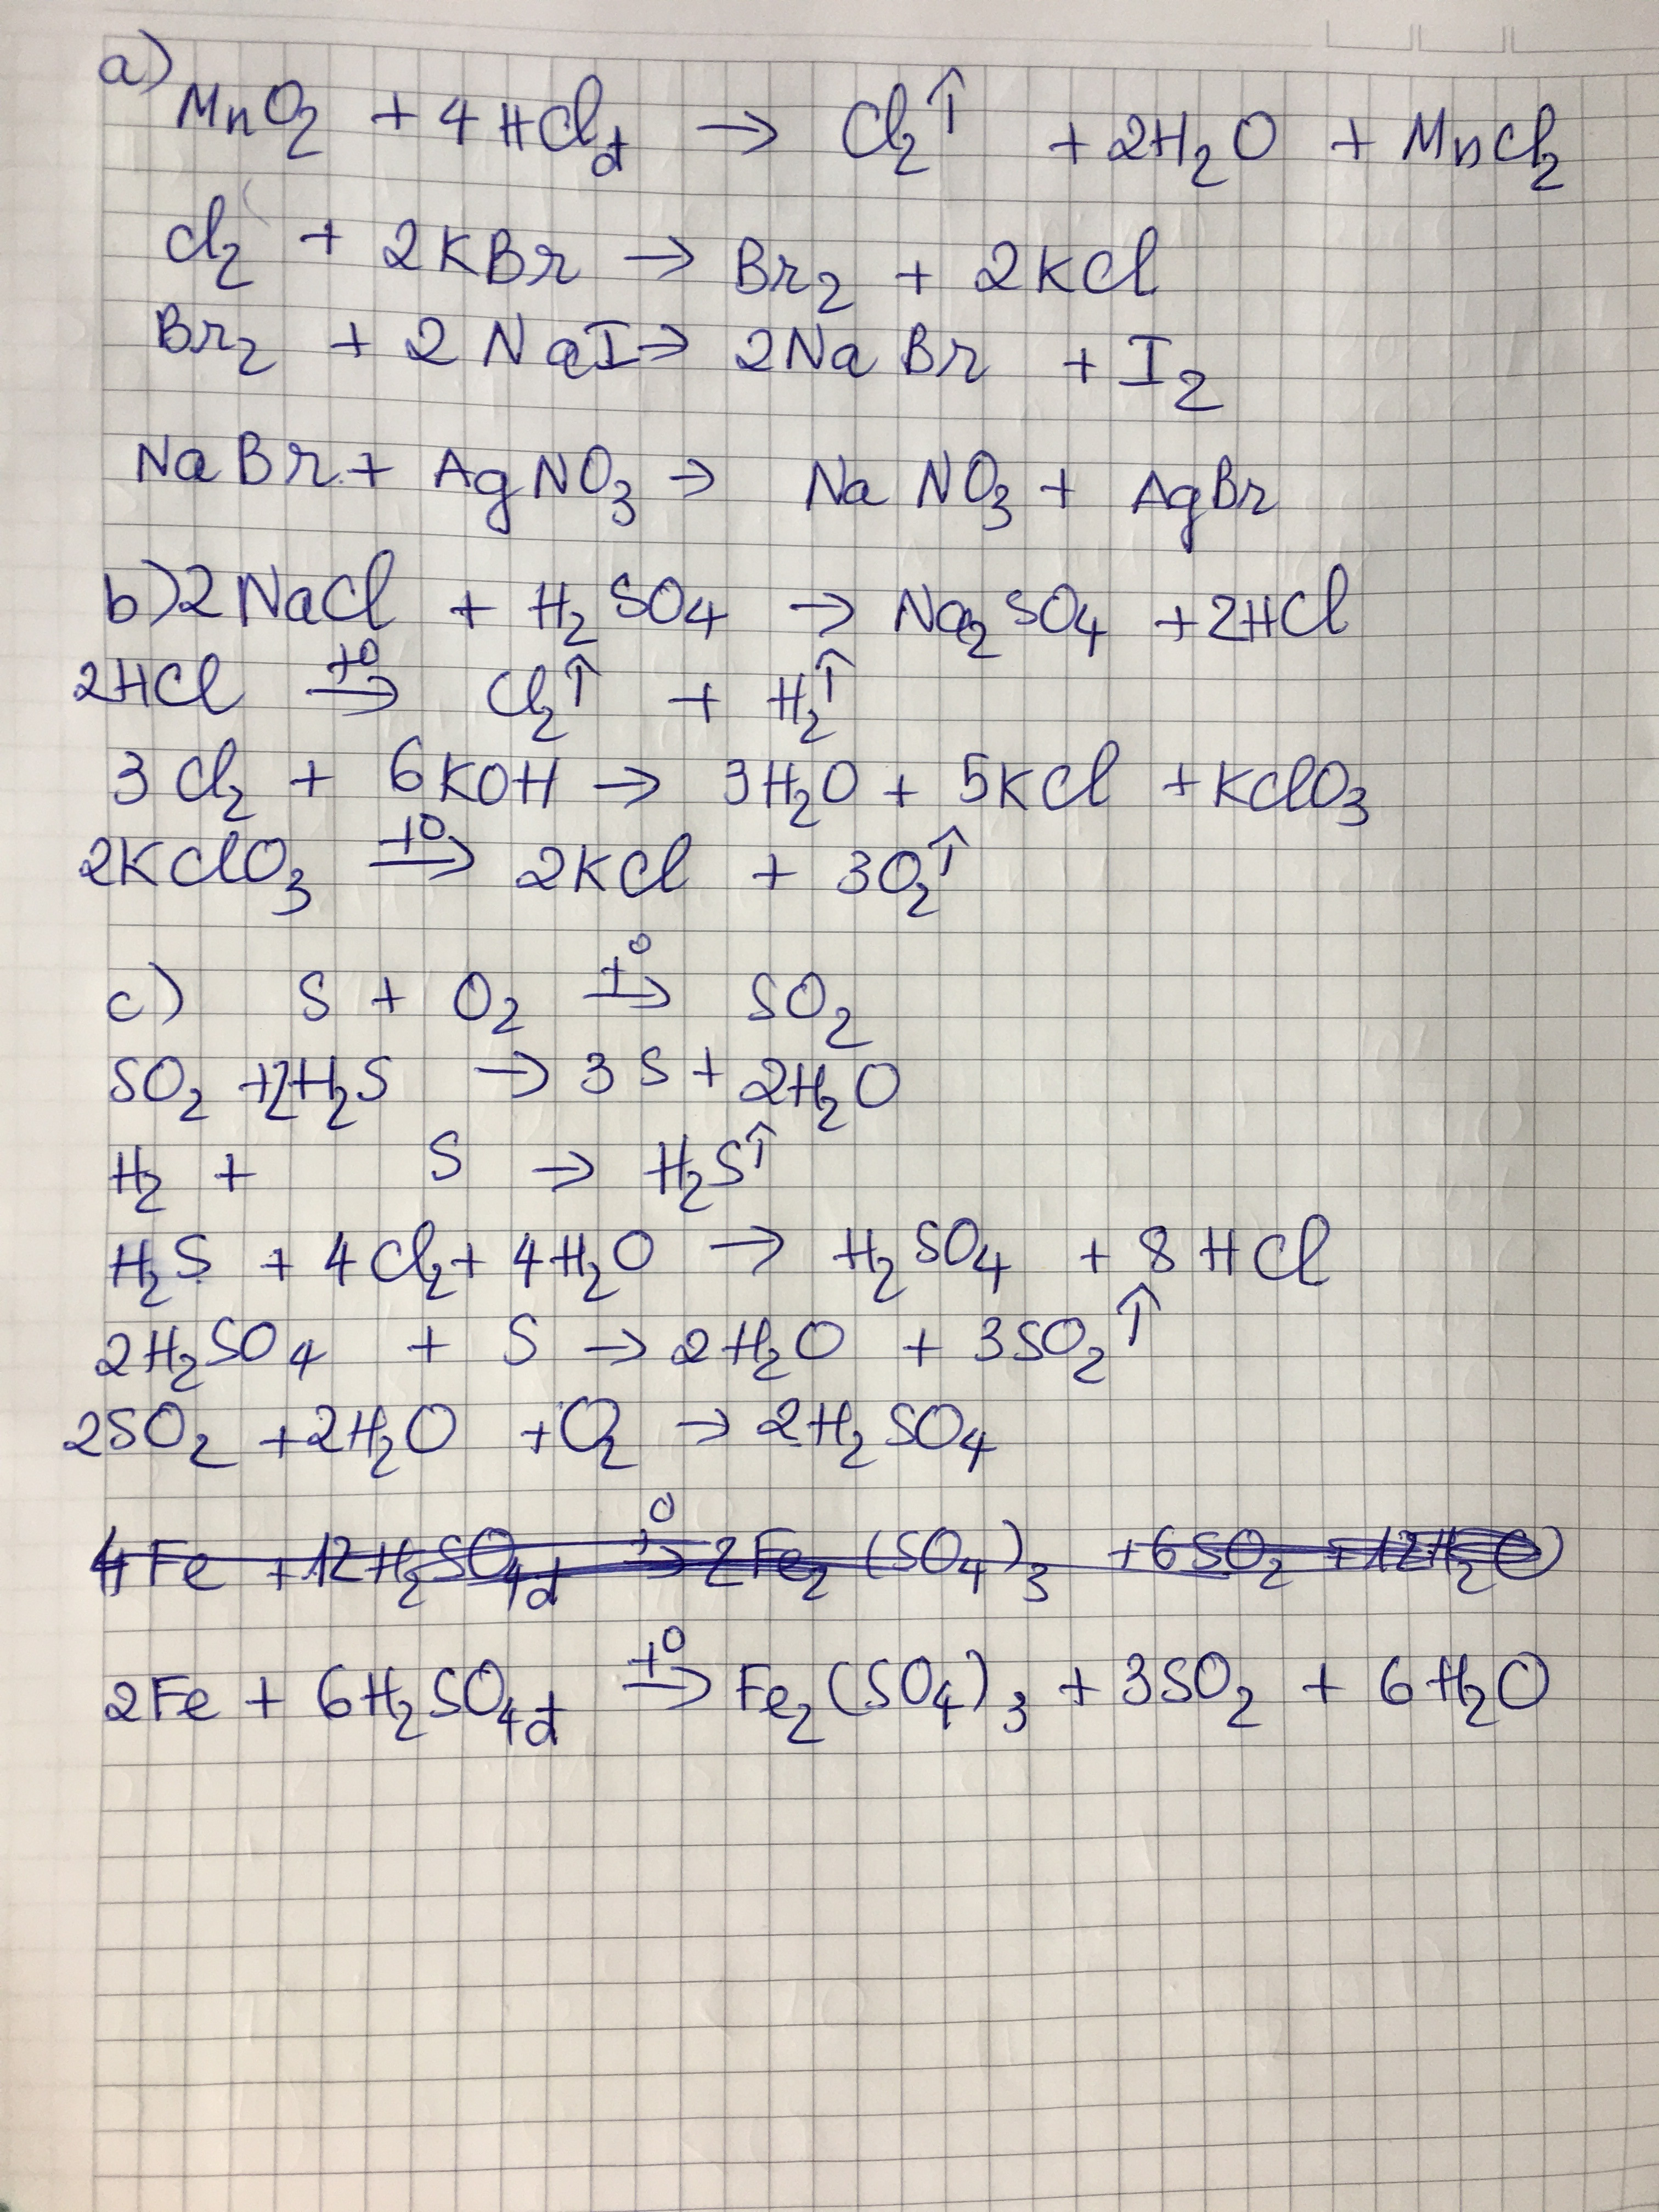 a) MnO₂ + 4HClđ → Cl₂↑ + 2H₂O + MnCl₂
Cl₂ + 2KBr → Br₂ + 2KCl
Br₂ + 2NaI → 2NaBr + I₂
NaBr + AgNO₃ → NaNO₃ + AgBr
b) 2NaCl + H₂SO₄ → Na₂SO₄ + 2HCl
2HCl t⁰→ Cl₂↑ + H₂↑
3Cl₂ + 6KOH → 3H₂O + 5KCl + KClO₃
2KClO₃ t⁰→ 2KCl + 3O₂↑
c) S + O₂ t⁰→ SO₂
SO₂ + 2H₂S → 3S + 2H₂O
H₂ + S → H₂S↑
H₂S + 4Cl₂ + 4H₂O → H₂SO₄ + 8HCl
2H₂SO₄ + S → 2H₂O + 3SO₂↑
2SO₂ + 2H₂O + O₂ → 2H₂SO₄
4Fe + 12H₂SO₄đ t⁰→ 2Fe₂(SO₄)₃ + 6SO₂ + 12H₂O
2Fe + 6H₂SO₄đ t⁰→ Fe₂(SO₄)₃ + 3SO₂ + 6H₂O